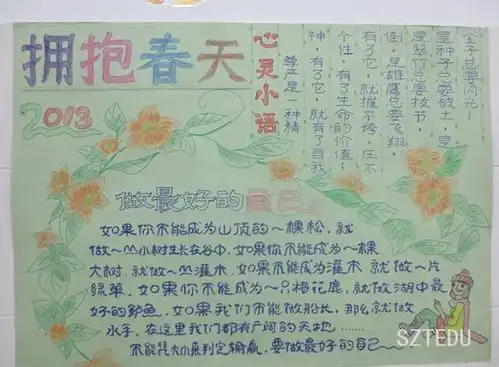 拥抱春天
2013
心灵小语
尊严是一种精
神，有了它，就有了自我
个性，有了生命的价值；
有了它，就摧不垮，压不
倒，是雄鹰总要飞翔，
是翠竹总要拔节，
是种子总要破土，是
金子总要闪光—
做最好的自己
如果你不能成为山顶的一棵松，就
做一丛小树生长在谷中，如果你不能成为一棵
大树，就做一丛灌木，如果不能成为灌木 就做一片
绿草，如果你不能成为一只梅花鹿，就做湖中最
好的鲈鱼，如果我们不能做船长，那么就做
水手，在这里我们都有广阔的天地……
不能凭大小来判定输赢，要做最好的自己—
SZTEDU